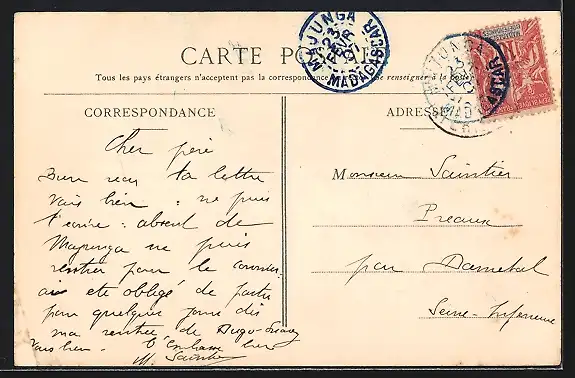 CARTE PO
Tous les pays étrangers n'acceptent pas la correspondance se renseigner à la poste
MAJUNGA
23 FEVR
MADAGASCAR
MAJUNGA
23
MADAGASCAR
CORRESPONDANCE
ADRESSE
Cher père
Bien reçu ta lettre
vais bien : ne puis
t'écrire : absent de
Majunga ne puis
rentrer pour le courrier.
ai été obligé de partir
pour quelques jours dès
ma rentrée de Diego-Suarez
Vais bien. T'embrasse bien
M. Saintier
Monsieur Saintier
Préaux
par Darnetal
Seine-Inférieure